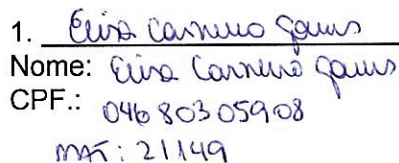 1. Elisa Carneiro Gomes
Nome: Elisa Carneiro Gomes
CPF.: 04680305908
MAT: 21149